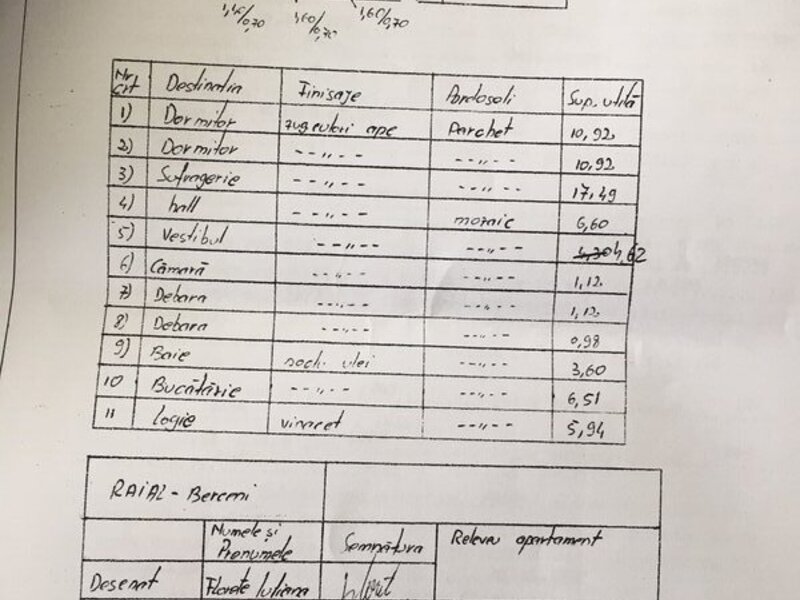 1,45/0,70 1,60/0,70 1,60/0,70
Nr. crt Destinatia Finisaje Pardoseli Sup. utilă
1) Dormitor zugraveli ape Parchet 10,92
2) Dormitor --„-- --„-- 10,92
3) Sufragerie --„-- --„-- 17,49
4) hall --„-- mozaic 6,60
5) Vestibul --„-- --„-- 4,30 4,62
6) Cămară --„-- --„-- 1,12
7) Debara --„-- --„-- 1,12
8) Debara --„-- --„-- 0,98
9) Baie ulei --„-- 3,60
10 Bucătărie --„-- --„-- 6,51
11 logie vinacet --„-- 5,94
RAIAL - Berceni
Numele și Prenumele Semnătura Releveu apartament
Desenat Iuliana